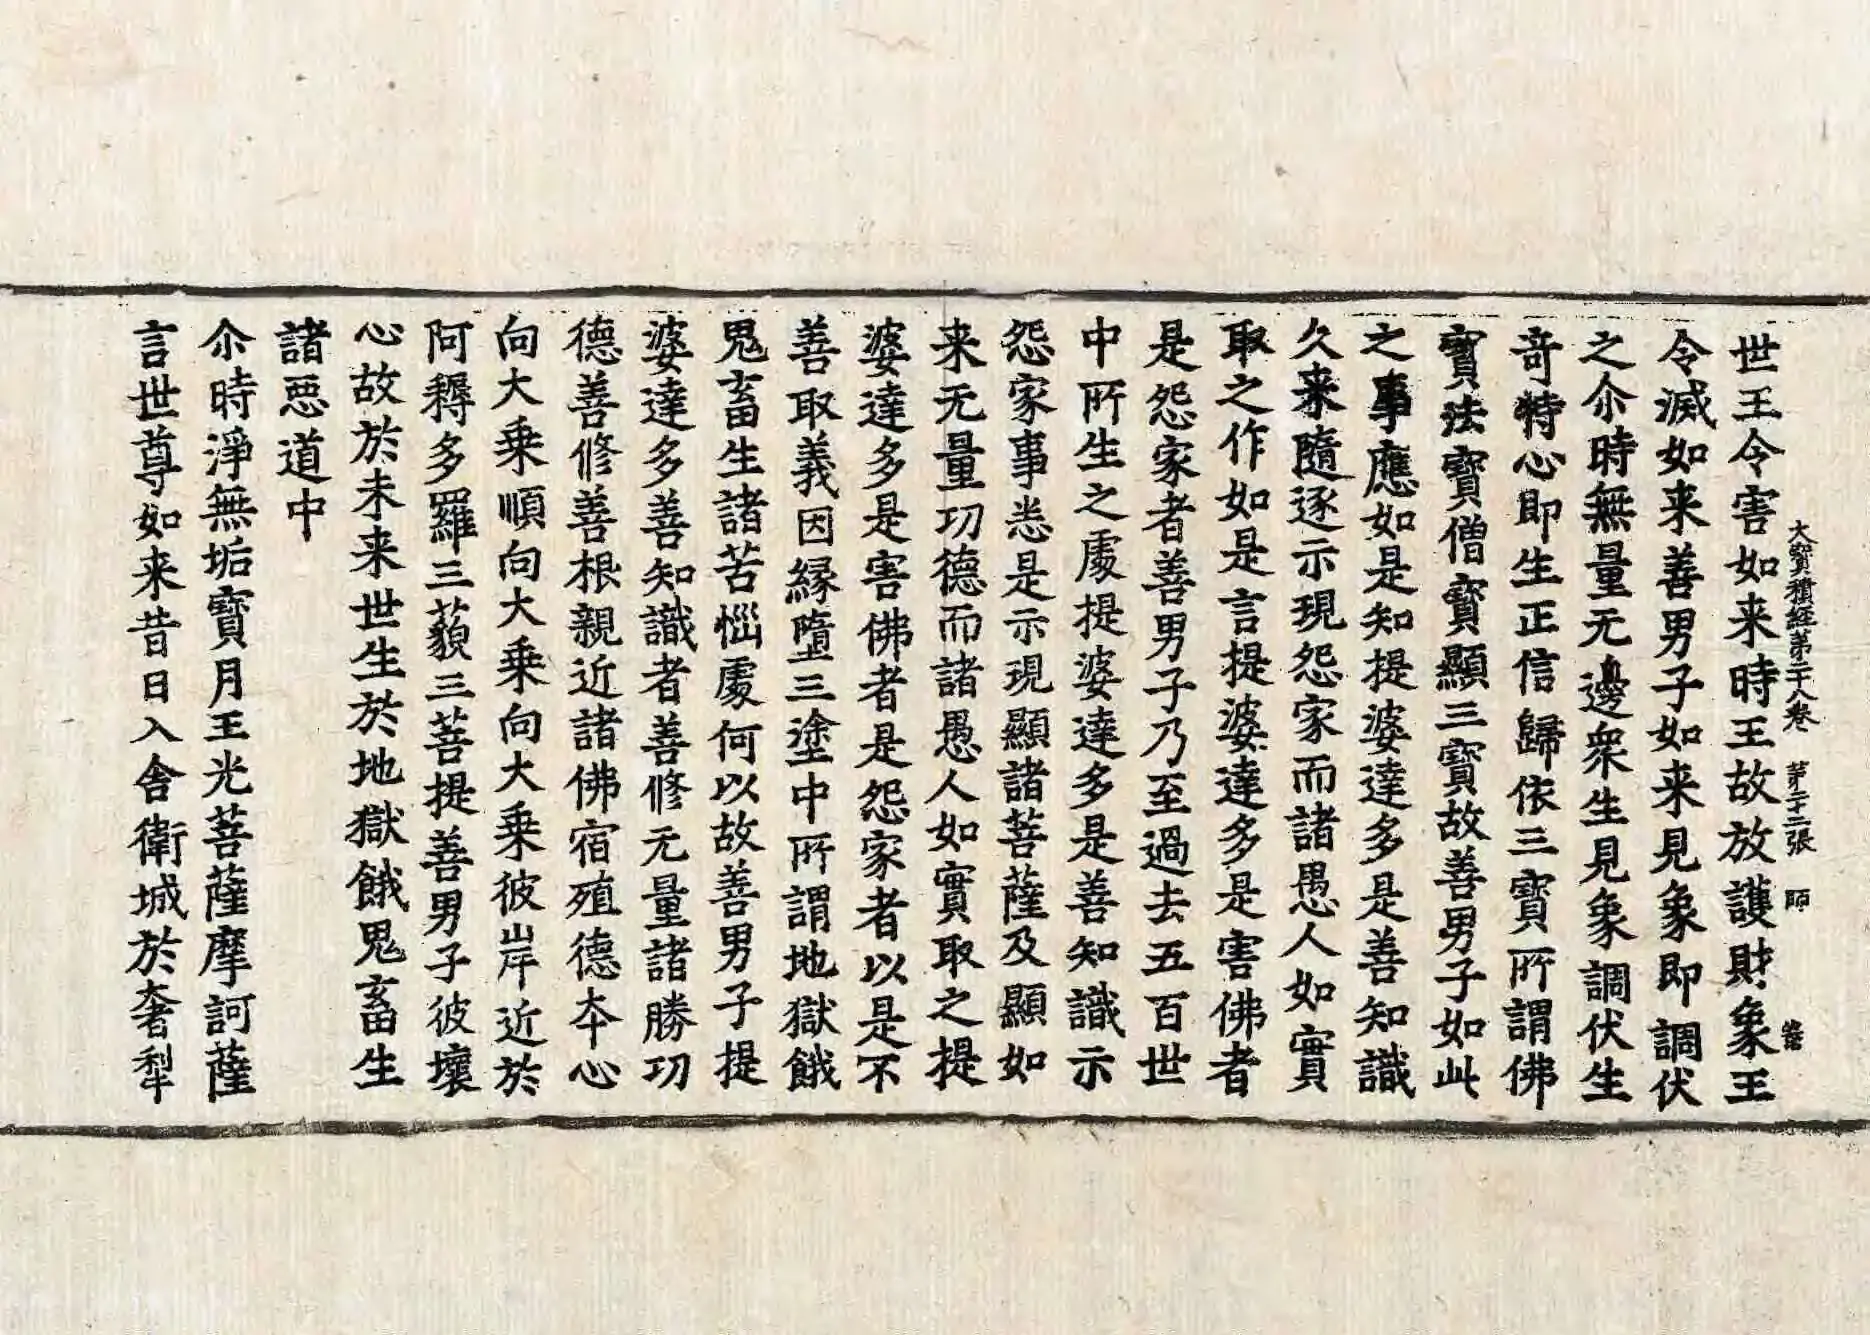 大寶積經第二十八卷 第二十二張 師
世王令害如来時王故放護財象王
令滅如来善男子如来見象即調伏
之尒時無量无邊衆生見象調伏生
竒特心即生正信歸依三寶所謂佛
寶法寶僧寶顯三寶故善男子如此
之事應如是知提婆達多是善知識
久来隨逐示現怨家而諸愚人如實
取之作如是言提婆達多是害佛者
是怨家者善男子乃至過去五百世
中所生之處提婆達多是善知識示
怨家事悉是示現顯諸菩薩及顯如
来无量功德而諸愚人如實取之提
婆達多是害佛者是怨家者以是不
善取義因緣墮三塗中所謂地獄餓
鬼畜生諸苦惱處何以故善男子提
婆達多善知識者善修无量諸勝功
德善修善根親近諸佛宿殖德夲心
向大乗順向大乗向大乗彼岸近於
阿耨多羅三藐三菩提善男子彼壞
心故於未来世生於地獄餓鬼畜生
諸惡道中
尒時淨無垢寶月王光菩薩摩訶薩
言世尊如来昔日入舍衛城於奢犁